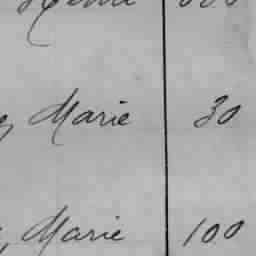 Marie 30
Marie 100